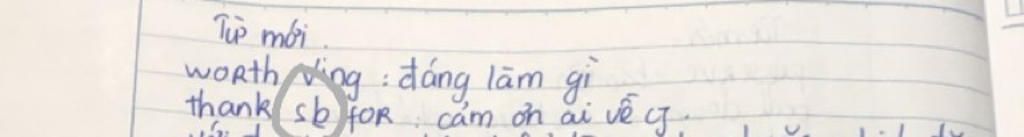 Từ mới.
worth Ving : đáng làm gì
thank sb for : cảm ơn ai về cj.